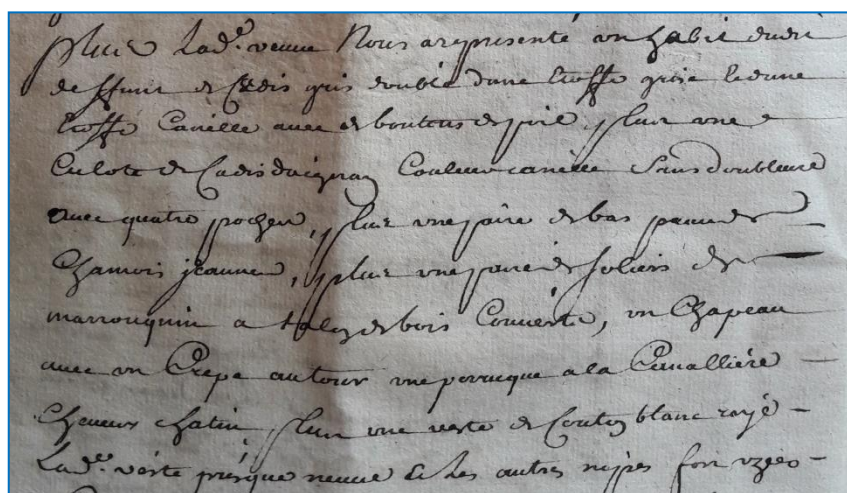 plus Lad.e veuve Nous a representé un habit dudit
deffunt de Cadis gris doublé dune Etoffe grise
Etoffe Canelle avec des boutons de poil, plus une
Culote de Cadis daignan Couleur canelle Sans doubleure
avec quatre poches, plus une paire de bas peau de
Chamois jeaunes, plus une paire de soliers de
marrouquin a talon de bois Couverte, un Chapeau
avec un Crepe autour une perruque a la Cavallière
Cheveux chatin, plus une veste de Couton blanc rayé
Lad.e veste presque neuve & Les autres nipes fort uzées